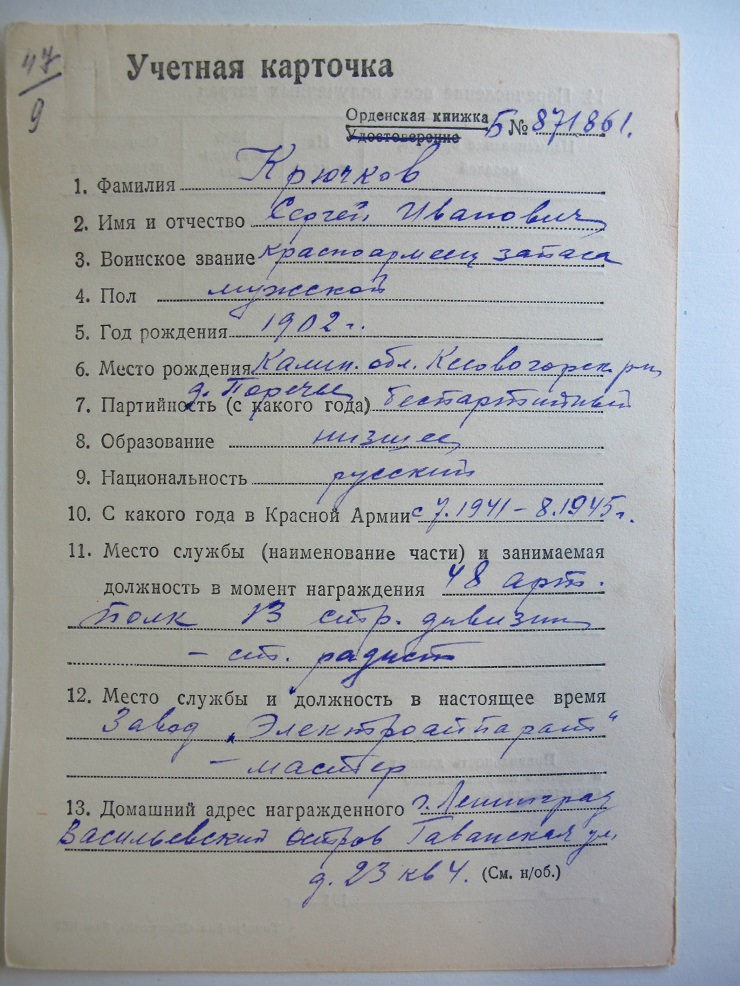 47/9
Учетная карточка
Орденская книжка
Удостоверение Б № 871861.
1. Фамилия Крючков
2. Имя и отчество Сергей Иванович
3. Воинское звание красноармеец запаса
4. Пол мужской
5. Год рождения 1902 г.
6. Место рождения Калин. обл. Кесовогорск. рн
д. Поречье
7. Партийность (с какого года) беспартийный
8. Образование низшее
9. Национальность русский
10. С какого года в Красной Армии с 7.1941 – 8.1945 г.
11. Место службы (наименование части) и занимаемая
должность в момент награждения 48 арт.
полк 13 стр. дивизии
– ст. радист
12. Место службы и должность в настоящее время
Завод „Электроаппарат“
– мастер
13. Домашний адрес награжденного г. Ленинград
Васильевский остров Гаванская ул
д. 23 кв 4. (См. н/об.)